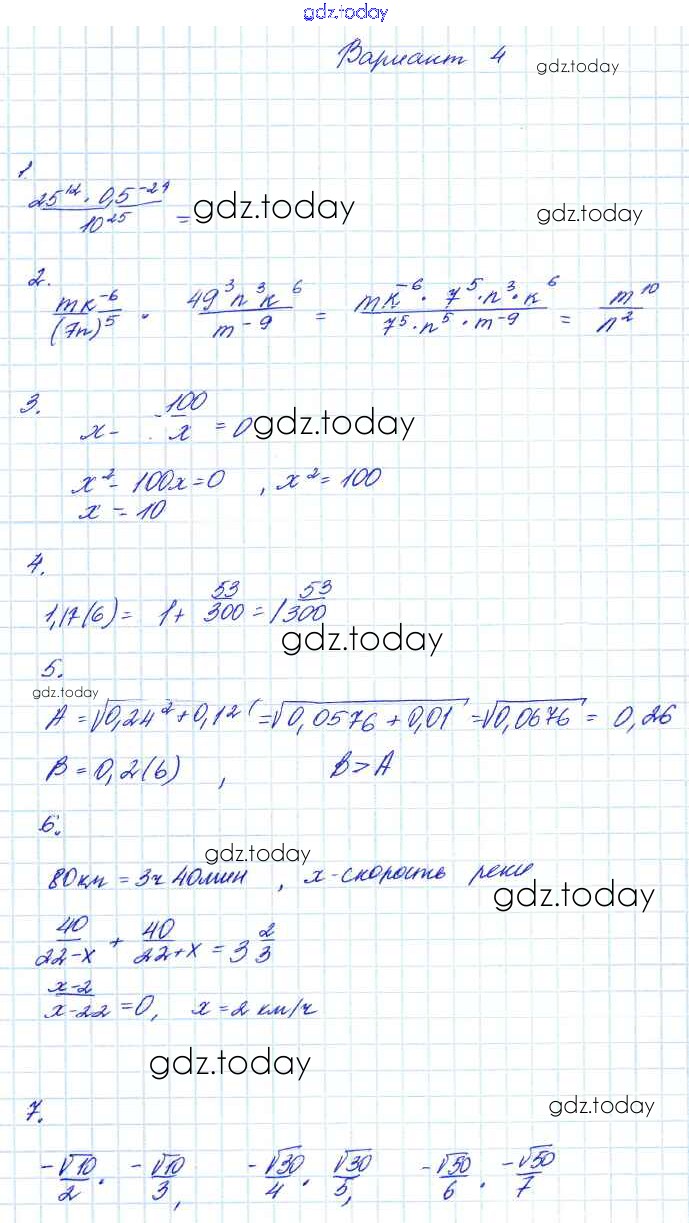 gdz.today
Вариант 4 gdz.today
1.
25^12 · 0,5^-24 / 10^25 = gdz.today gdz.today
2.
mк^-6 / (7n)^5 · 49^3 n^3 к^6 / m^-9 = mк^-6 · 7^5 · n^3 · к^6 / 7^5 · n^5 · m^-9 = m^10 / n^2
3.
x - 100 / x = 0 gdz.today
x^2 - 100x = 0 , x^2 = 100
x = 10
4.
1,17(6) = 1 + 53/300 = 1 53/300
gdz.today
5.
gdz.today
A = √0,24^2 + 0,1^2 = √0,0576 + 0,01 = √0,0676 = 0,26
B = 0,2(6) , B > A
6.
gdz.today
80км = 3ч 40мин , x - скорость реки
gdz.today
40 / 22-x + 40 / 22+x = 3 2/3
x-2 / x-22 = 0, x = 2 км/ч
gdz.today
7. gdz.today
-√10 / 2 · -√10 / 3, -√30 / 4 · √30 / 5, -√50 / 6 · -√50 / 7